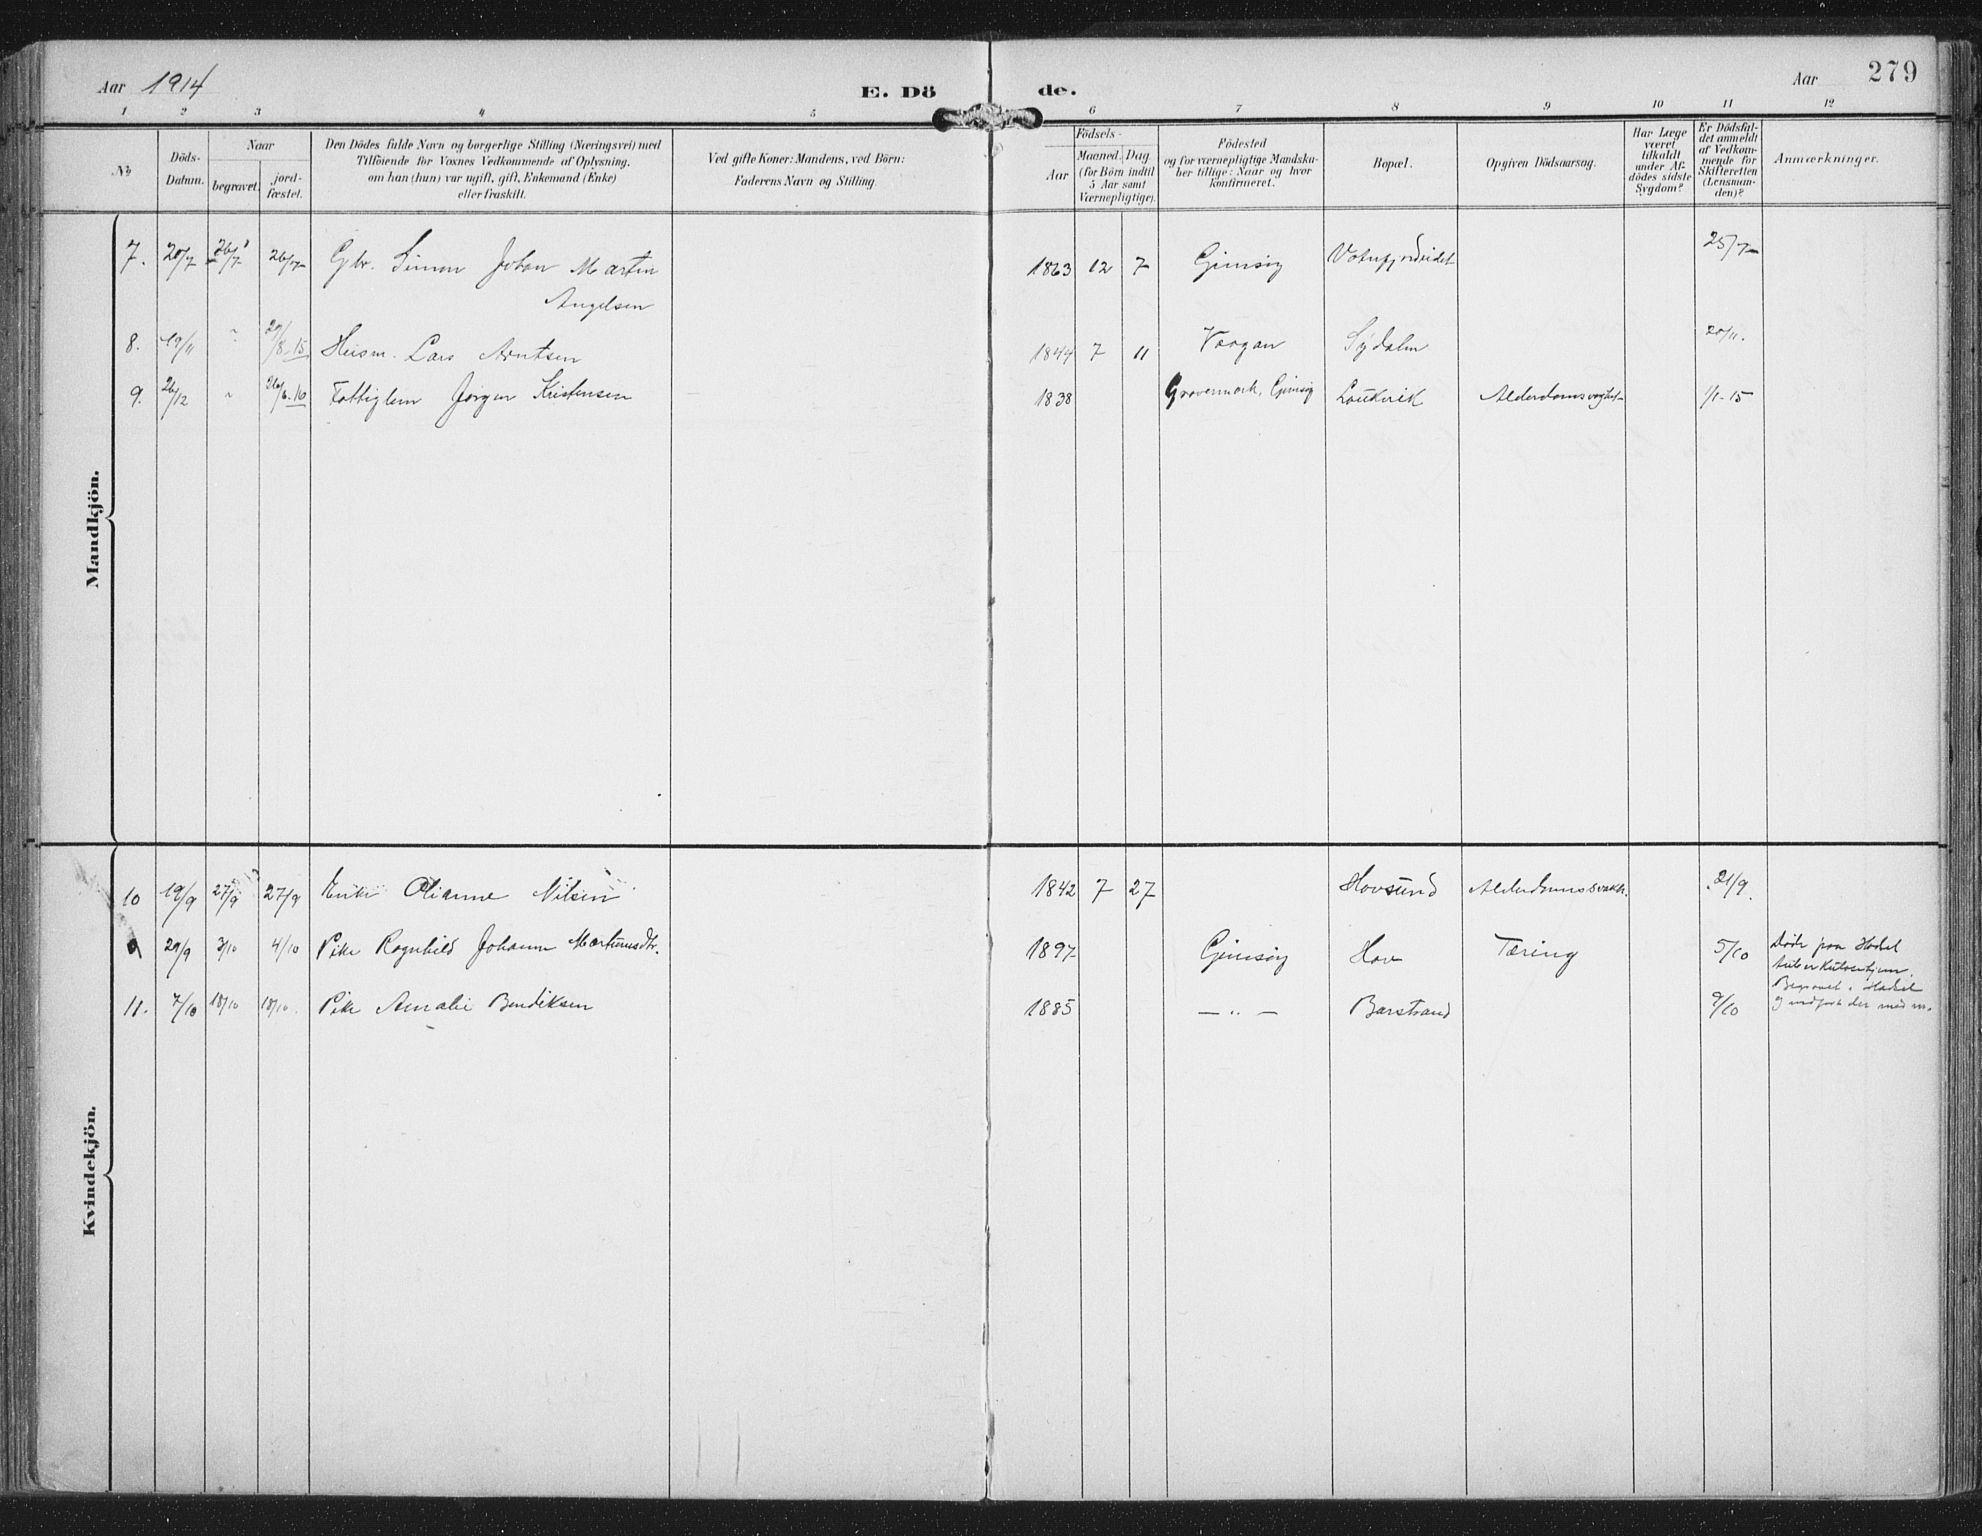 Aar 1914
E. Dö de.
Aar 279
1 2 3 4 5 6 7 8 9 10 11 12
№
Döds-
Datum.
Naar
begravet.
jord-
fæstet.
Den Dödes fulde Navn og borgerlige Stilling (Næringsvei) med
Tilföiende for Voxnes Vedkommende af Oplysning,
om han (hun) var ugift, gift, Enkemand (Enke)
eller fraskilt.
Ved gifte Koner: Mandens, ved Börn:
Faderens Navn og Stilling.
Födsels-
Aar
Maaned. Dag
(for Börn indtil
5 Aar samt
Værnepligtige).
Födested
og for værnepligtige Mandska-
ber tillige: Naar og hvor
konfirmeret.
Bopæl.
Opgiven Dödsaarsag.
Har Læge
været
tilkaldt
under Af-
dödes sidste
Sygdom?
Er Dödsfal-
det anmeldt
af Vedkom-
mende for
Skifteretten
(Lensman-
den)?
Anmærkninger.
Mandkjön.
7. 20/7 26/7 26/7 Gbr. Simon Johan Martin 1863 12 7 Gimsöy 25/7
Angelsen
8. 19/11 " 29/8-15 Husm. Lars Arntsen 1844 7 11 Vaagan Sydalen 20/11.
9. 26/12 " 26/6-16 Fattiglem Jörgen Kristensen 1838 Gravermark, Gimsöy Laukvik 1/1-15
Kvindekjön.
10 19/9 27/9 27/9 Enke Olianne Nilsen 1842 7 27 Hovsund Alderdomssvakh. 21/9.
9 29/9 3/10 4/10 Pike Ragnhild Johanne Martinusdtr. 1897 Gimsöy Hov Tæring 5/10 Döde paa Hadsel
Tuberkulosehjem.
Begravet i Hadsel
11. 7/10 18/10 18/10. Pike Amalie Bendiksen 1885 — " — Barstrand 9/10 og indfört der med n.